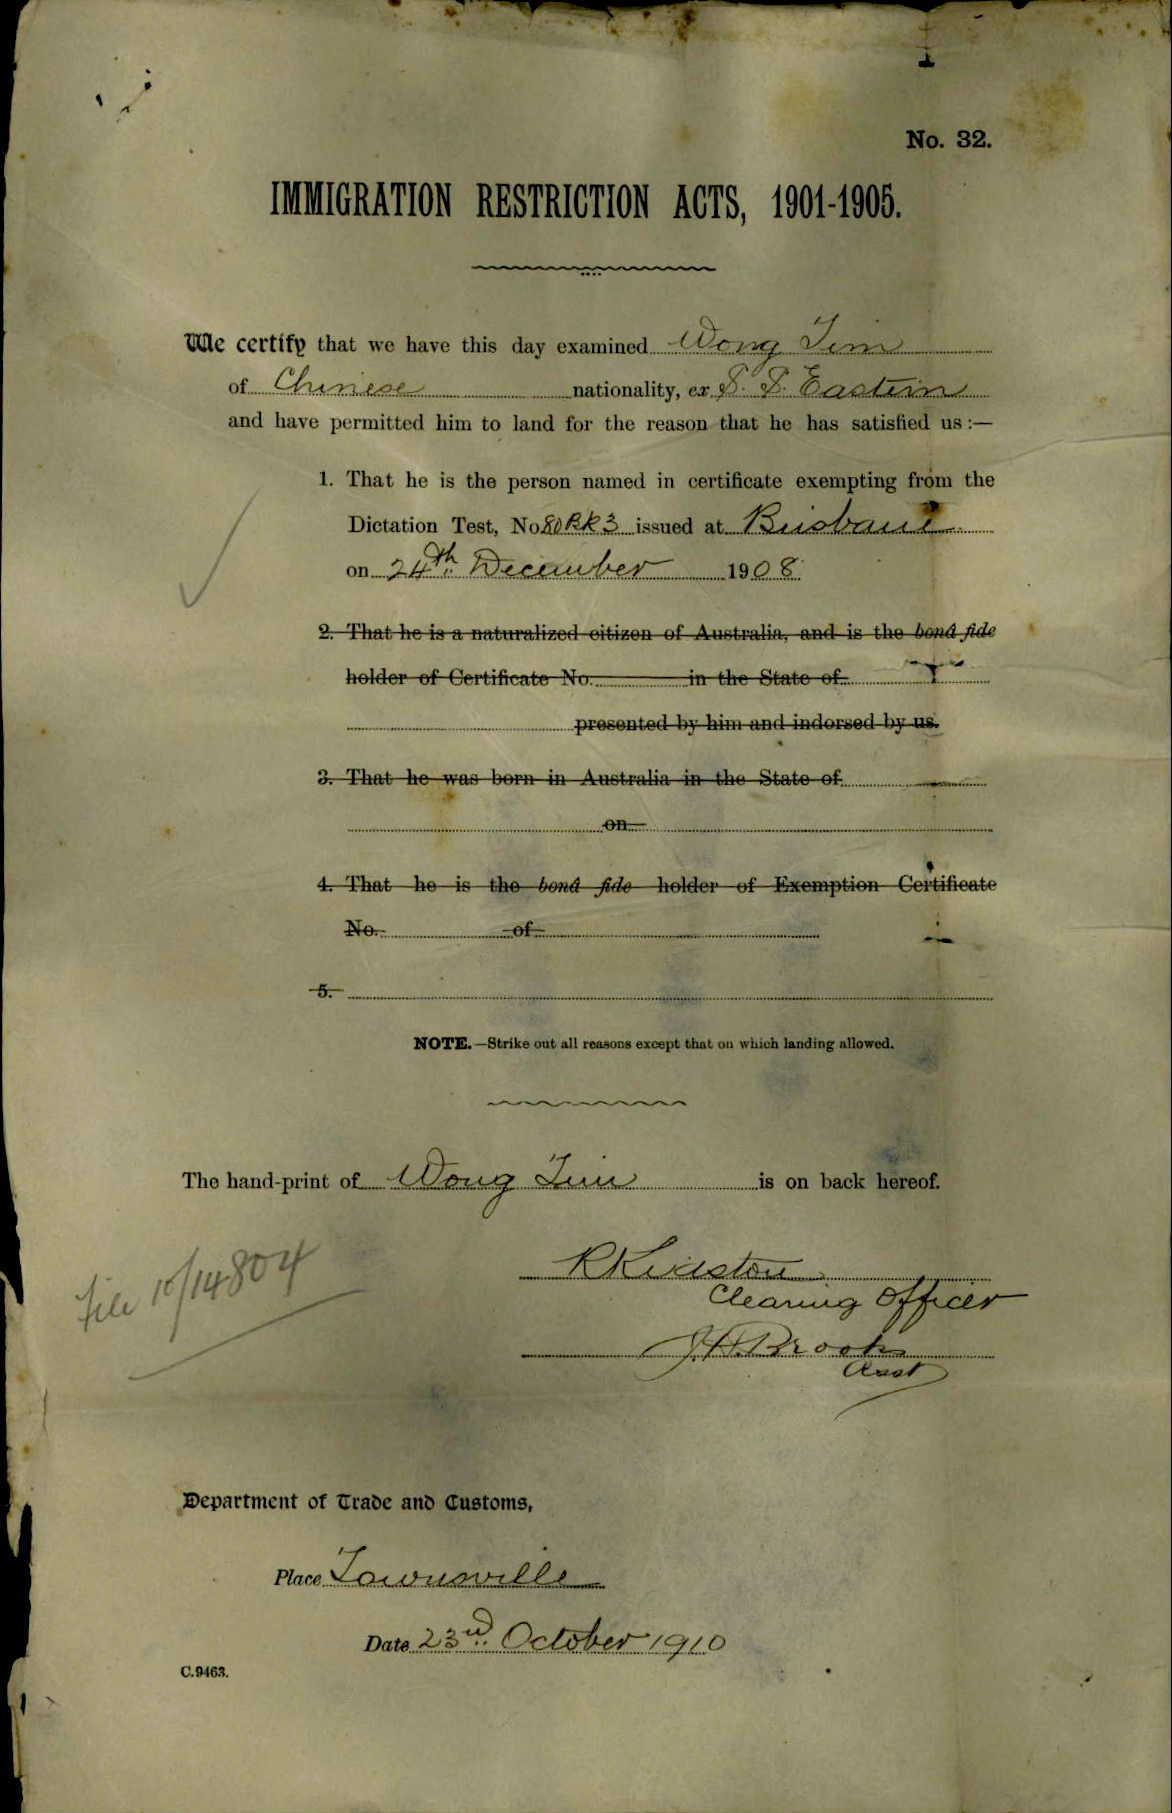 No. 32.
IMMIGRATION RESTRICTION ACTS, 1901-1905.
We certify that we have this day examined Wong Tim
of Chinese nationality, ex S. S. Eastern
and have permitted him to land for the reason that he has satisfied us :—
1. That he is the person named in certificate exempting from the
Dictation Test, No. issued at Brisbane
on 24th December 1908
2. That he is a naturalized citizen of Australia, and is the bonâ fide
holder of Certificate No. in the State of
presented by him and indorsed by us.
3. That he was born in Australia in the State of
on
4. That he is the bonâ fide holder of Exemption Certificate
No. of
5.
NOTE.—Strike out all reasons except that on which landing allowed.
The hand-print of Wong Tim is on back hereof.
File 10/14804
Clearing Officer
J.H. Brooks
Asst
Department of Trade and Customs,
Place Townsville
Date 23rd October 1910
C.9463.